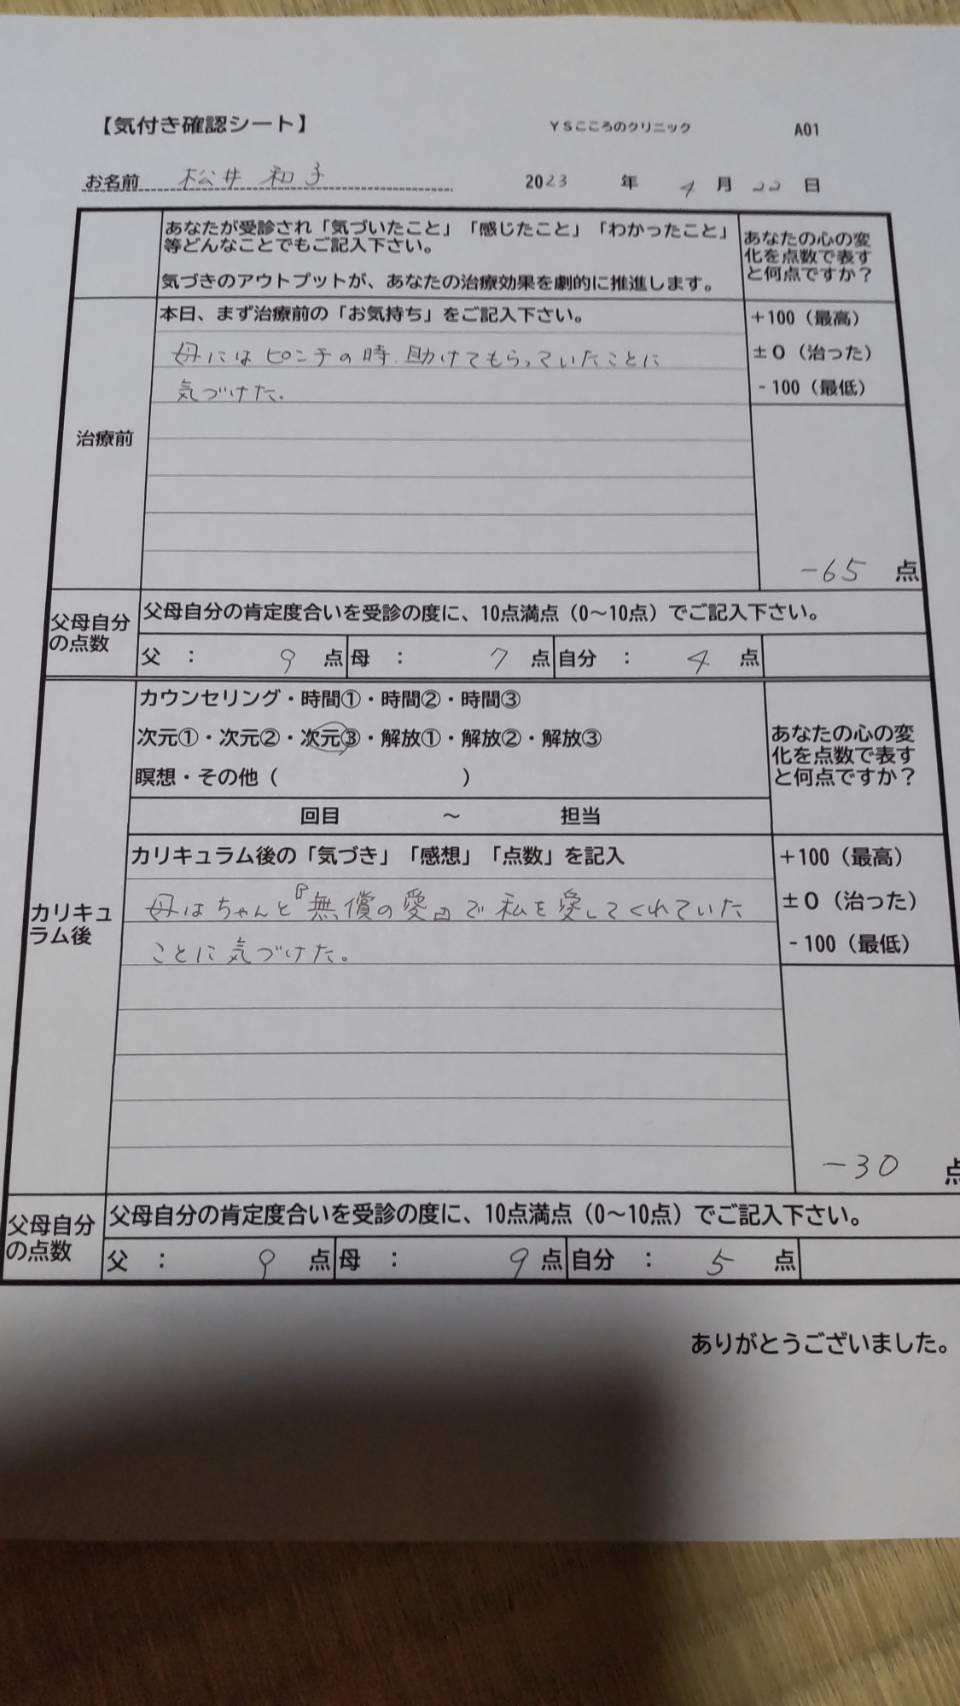 【気付き確認シート】 YSこころのクリニック A01
お名前 松井 和子 2023 年 4 月 22 日
あなたが受診され「気づいたこと」「感じたこと」「わかったこと」
等どんなことでもご記入下さい。
気づきのアウトプットが、あなたの治療効果を劇的に推進します。
あなたの心の変
化を点数で表す
と何点ですか？
治療前
本日、まず治療前の「お気持ち」をご記入下さい。
母にはピンチの時、助けてもらっていたことに
気づけた。
+100（最高）
±0（治った）
-100（最低）
-65 点
父母自分
の点数
父母自分の肯定度合いを受診の度に、10点満点（0〜10点）でご記入下さい。
父 ： 9 点 母 ： 7 点 自分 ： 4 点
カリキュ
ラム後
カウンセリング・時間①・時間②・時間③
次元①・次元②・次元③・解放①・解放②・解放③
瞑想・その他（ ）
回目 〜 担当
あなたの心の変
化を点数で表す
と何点ですか？
カリキュラム後の「気づき」「感想」「点数」を記入
母はちゃんと『無償の愛』で私を愛してくれていた
ことに気づけた。
+100（最高）
±0（治った）
-100（最低）
-30 点
父母自分
の点数
父母自分の肯定度合いを受診の度に、10点満点（0〜10点）でご記入下さい。
父 ： 9 点 母 ： 9 点 自分 ： 5 点
ありがとうございました。